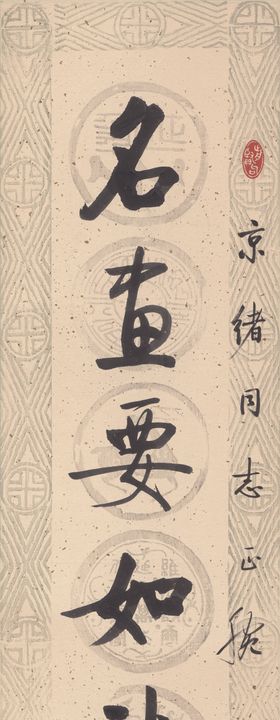 京緒同志正腕
名畫要如